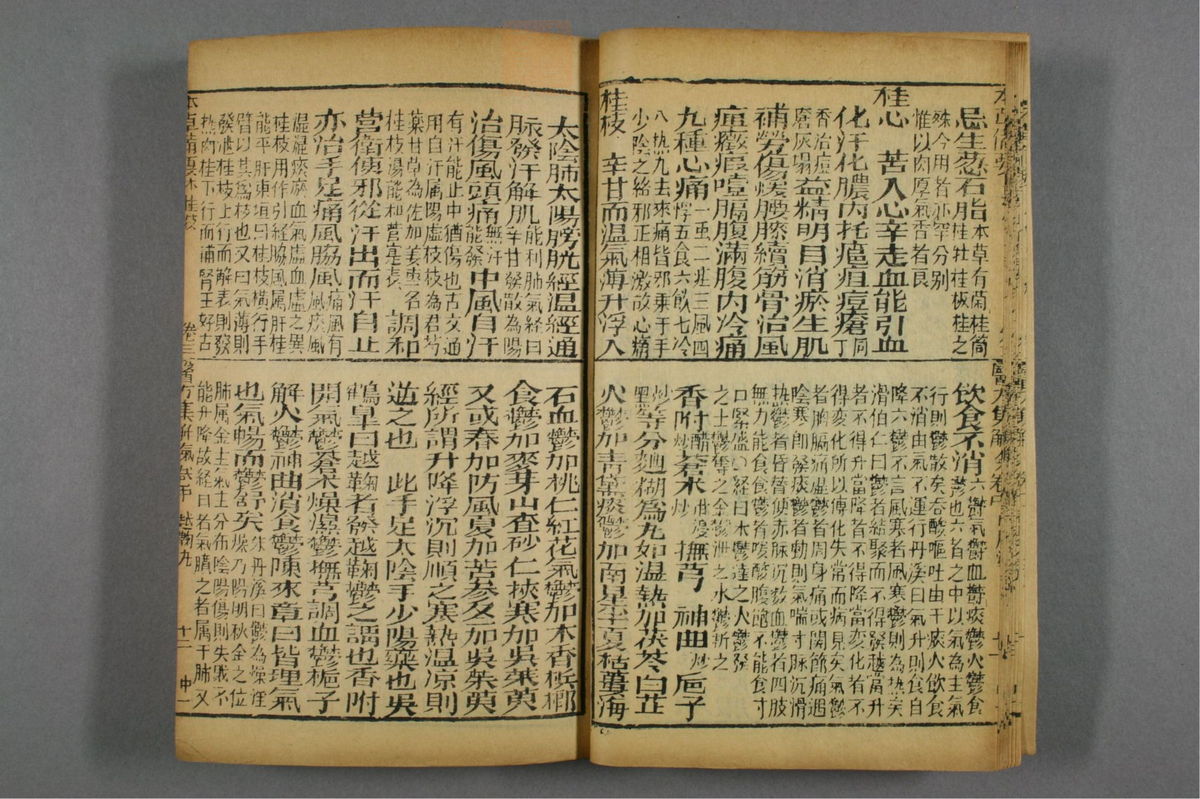 忌生葱石脂本草有菌桂筒桂牡桂板桂之
殊今用者亦罕分別惟以肉厚氣香者良
桂心　苦入心辛走血能引血
化汗化膿內托癰疽痘瘡同丁
香治痘瘡灰塌益精明目消瘀生肌
補勞傷煖腰膝續筋骨治風
痺癥瘕噎膈腹滿腹內冷痛
九種心痛一虫二疰三風四悸五食六飲七冷
八熱九去來痛皆邪乘于手少陰之絡邪正相激故心痛
桂枝　辛甘而溫氣薄升浮入
太陰肺太陽膀胱經溫經通
脈發汗解肌能利肺氣經曰辛甘發散為陽
治傷風頭痛無汗能發中風自汗
有汗能止中猶傷也古文通用自汗屬陽虛桂枝為君芍
藥甘草為佐加姜棗名桂枝湯能和營實表調和
營衛使邪從汗出而汗自止
亦治手足痛風脇風痛風有風痰風
濕濕痰瘀血氣虛血虛之異桂枝用作引經脇風屬肝桂
能平肝東垣曰桂枝橫行手臂以其為枝也又曰氣薄則
發泄桂枝上行而解表氣厚則發熱肉桂下行而補腎王好古
本草備要木桂枝　卷三
飲食不消六鬱氣鬱血鬱痰鬱火鬱食鬱也六者之中以氣為主氣
行則鬱散矣吞酸嘔吐由于痰火飲食不消由氣不運行丹溪曰氣升則食自
降六鬱不言風寒者風寒鬱則為熱矣滑伯仁曰鬱者結聚而不得發越當升
者不得升當降者不得降當變化者不得變化所以傳化失常而病見矣氣鬱
者胸膈痛濕鬱者周身痛或關節痛遇陰寒即發痰鬱者動則氣喘寸脉沉滑
熱鬱者昏瞀小便赤脉沉數血鬱者四肢無力能食食鬱者噯酸腹飽不能食寸
口緊盛○經曰木鬱達之火鬱發之土鬱奪之金鬱泄之水鬱折之
香附醋炒蒼朮泔浸炒撫芎　神曲炒梔子
炒黑等分麯糊為丸如濕熱加茯苓白芷
火鬱加青黛痰鬱加南星半夏枯蔞海
石血鬱加桃仁紅花氣鬱加木香梹榔
食鬱加麥芽山查砂仁挾寒加吳茱萸
又或春加防風夏加苦參冬加吳茱萸
經所謂升降浮沉則順之寒熱溫凉則
逆之也　此手足太陰手少陽藥也吳
鶴皐曰越鞠者發越鞠鬱之謂也香附
開氣鬱蒼朮燥濕鬱撫芎調血鬱梔子
解火鬱神曲消食鬱陳來章曰皆理氣
也氣暢而鬱舒矣朱丹溪曰鬱為燥淫燥乃陽明秋金之位
肺屬金主氣主分布陰陽傷則失職不能升降故經曰諸氣膹鬱皆屬于肺又
醫方集解　氣卷中　越鞠九　十二　中一